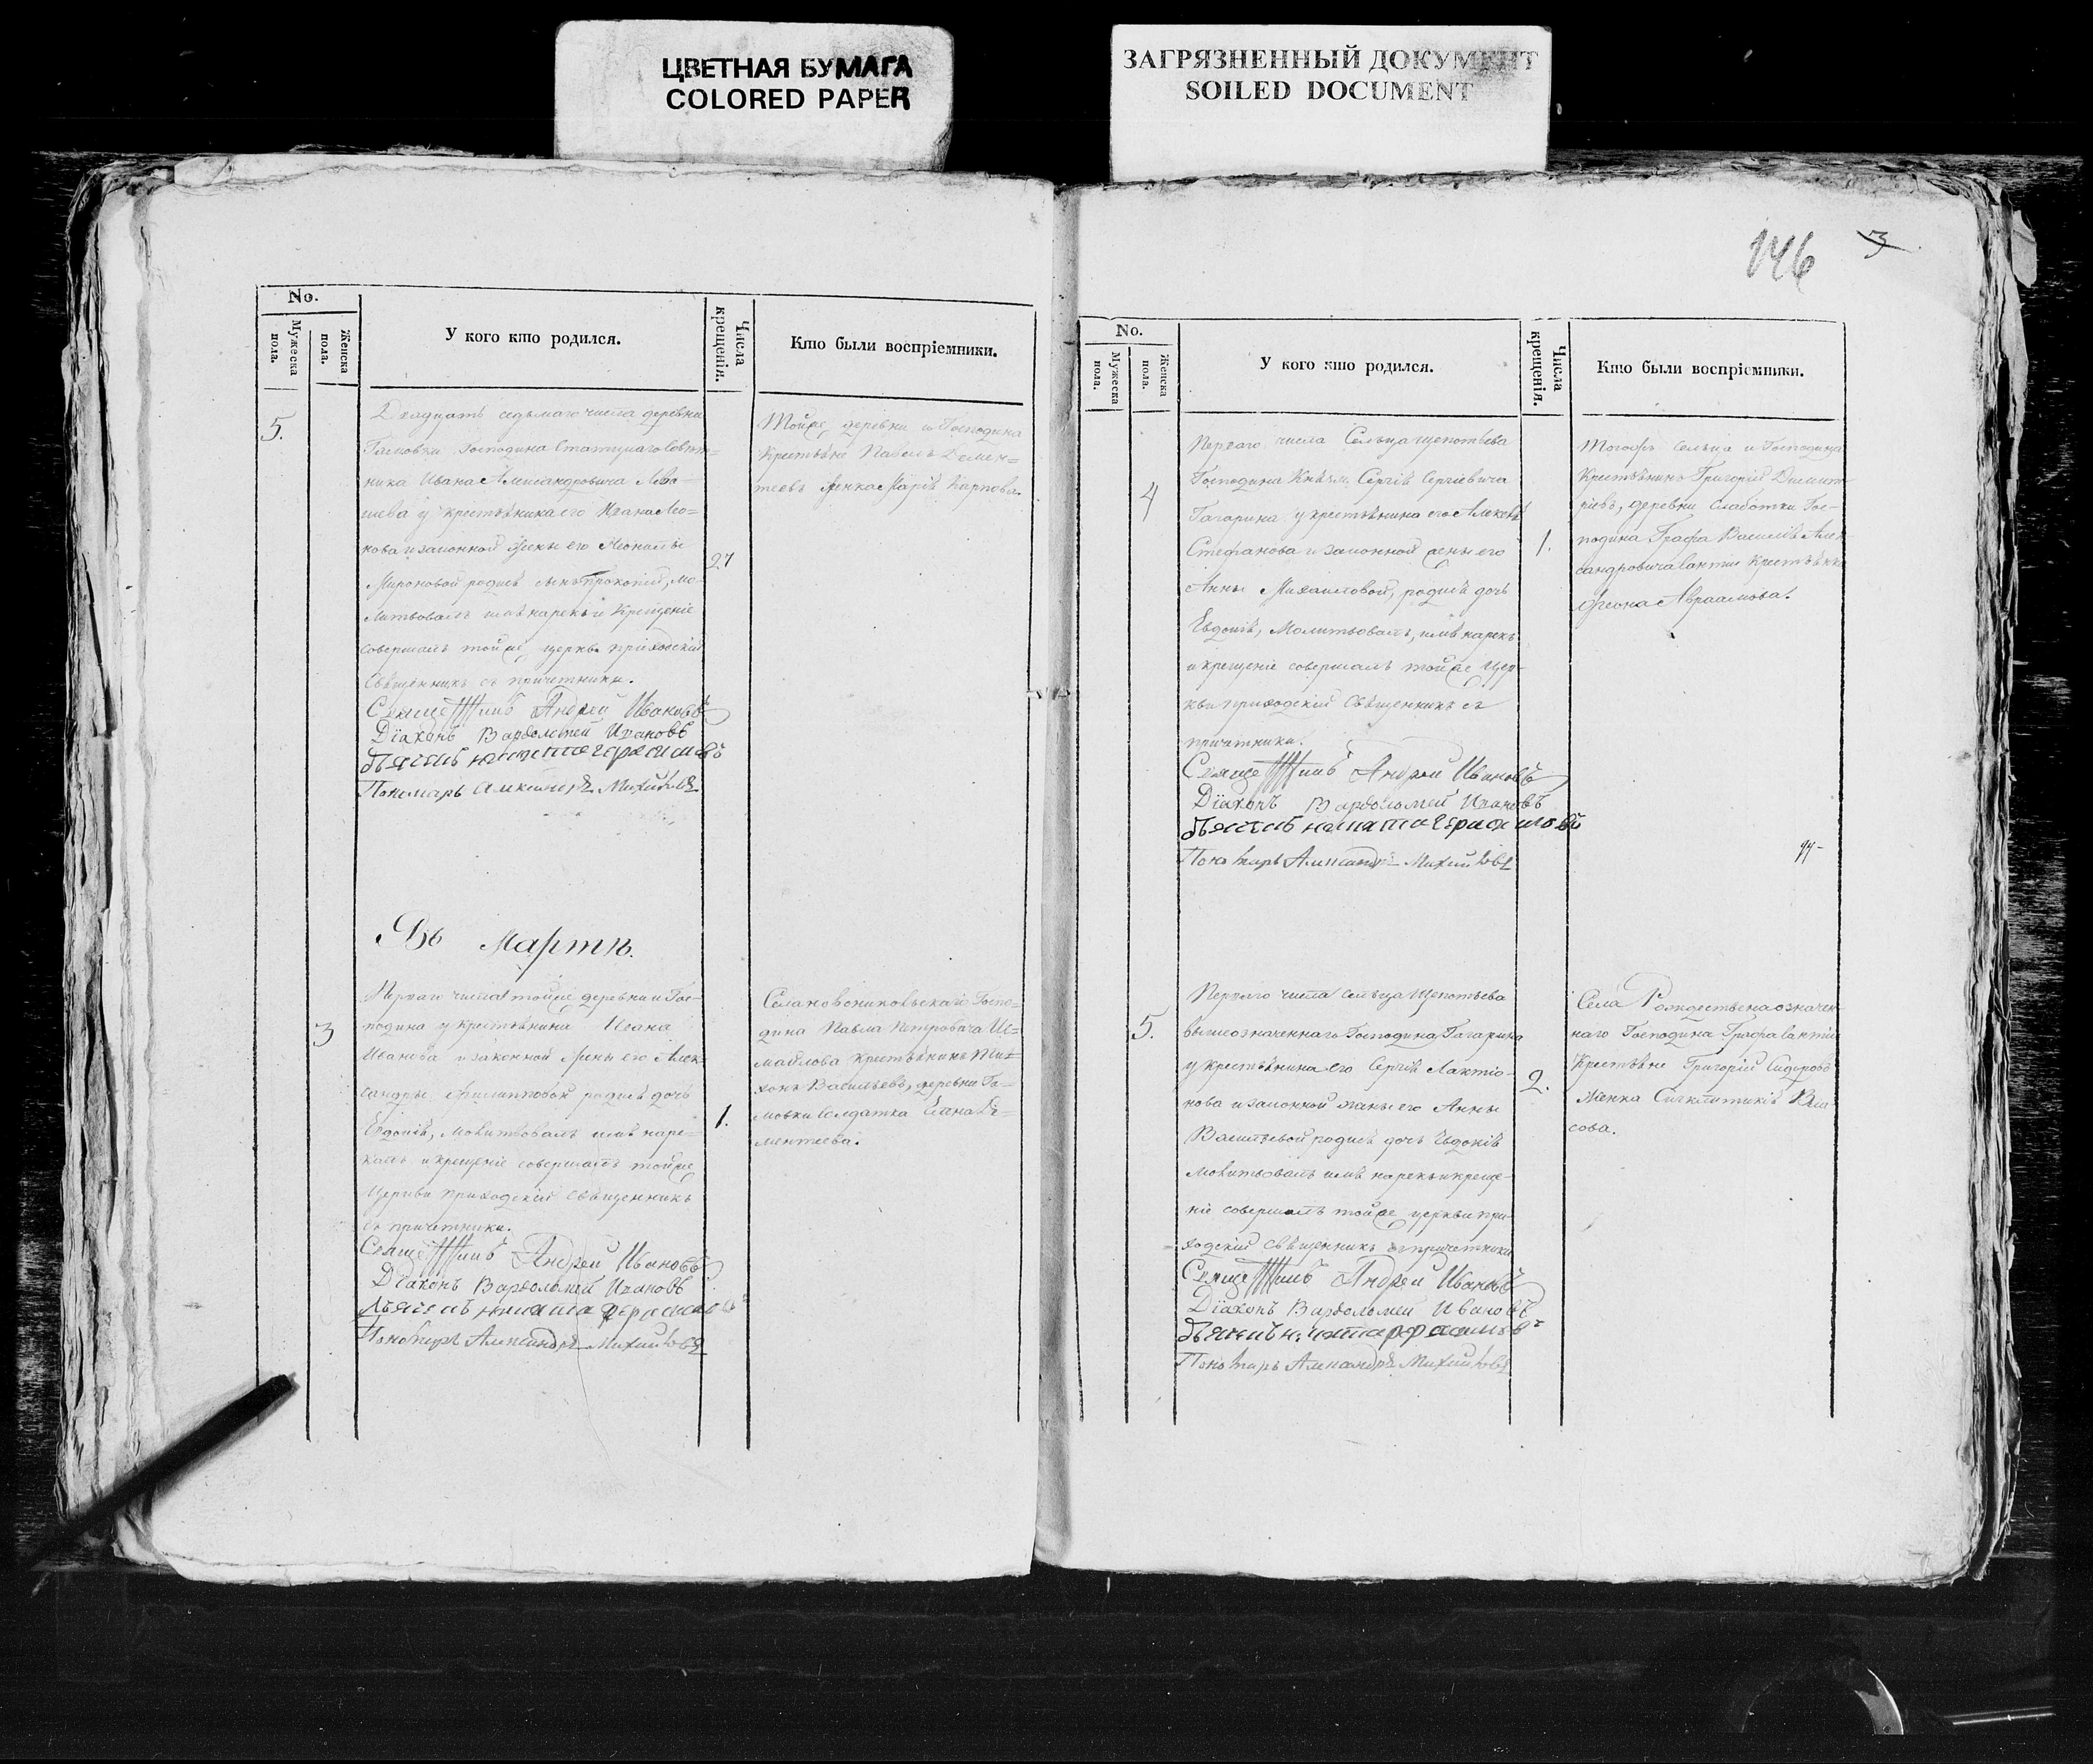 ЦВЕТНАЯ БУМАГА
COLORED PAPER
ЗАГРЯЗНЕННЫЙ ДОКУМЕНТ
SOILED DOCUMENT
146 3
No.
Мужеска пола.
Женска пола.
У кого кто родился.
Числа крещенія.
Кто были воспріемники.
5.
Двадцать седьмаго числа деревни
Господина Статскаго Совѣт=
ника Ивана Александровича
шева у крестьянина его Ивана
нова и законной жены его
Мироновой родися сынъ Прокопій, мо-
литвовалъ имя нарекъ и крещеніе
совершалъ тойже церкви приходскій
Священникъ съ причетники.
Священникъ Андрей Ивановъ
Діаконъ Варѳоломей Ивановъ
Дьячекъ Никита Герасимовъ
Пономарь Александръ Михайловъ
27
Тойже деревни и Господина
Крестьяне Павелъ Демен=
тьевъ женка Марія Карпова.
Въ Мартѣ.
3
Перваго числа тойже деревни и Гос-
подина у крестьянина Ивана
Иванова и законной жены его Алек-
сандры Филипповой родися дочь
Евдокія, молитвовалъ имя наре=
калъ и крещеніе совершалъ тойже
Церкви приходскій священникъ
съ причетники.
Священникъ Андрей Ивановъ
Діаконъ Варѳоломей Ивановъ
Дьячекъ Никита Герасимовъ
Пономарь Александръ Михайловъ
1.
Села Господ-
дина Павла Петровича Из=
майлова крестьянинъ Ти=
хонъ Васильевъ, деревни Га=
мовки Солдатка Де=
ментьева.
No.
Мужеска пола.
Женска пола.
У кого кто родился.
Числа крещенія.
Кто были воспріемники.
4
Перваго числа Сельца Щепотьева
Господина Князя Сергія Сергіевича
Гагарина у крестьянина его Алексѣя
Стефанова и законной жены его
Анны Михайловой, родися дочь
Евдокія, Молитвовалъ, имя нарекъ
и крещеніе совершалъ тойже Цер-
кви приходскій Священникъ съ
причетники.
Священникъ Андрей Ивановъ
Діаконъ Варѳоломей Ивановъ
Дьячекъ Никита Герасимовъ
Пономарь Александръ Михайловъ
1.
Тогожъ сельца и Господина
Крестьянинъ Григорій Димит-
ріевъ, деревни Слаботки Гос-
подина Графа Василія Алек-
сандровича Сантія Крестьянка
Авраамова.
5.
Перваго числа сельца Щепотьева
вышеозначеннаго Господина Гагарина
у крестьянина его Сергія Лактіо-
нова и законной жены его Анны
Васильевой родися дочь Евдокія
молитвовалъ имя нарекъ и креще-
ніе совершалъ тойже церкви при-
ходскій священникъ съ причетники
Священникъ Андрей Ивановъ
Діаконъ Варѳоломей Ивановъ
Дьячекъ Никита Герасимовъ
Пономарь Александръ Михайловъ
2.
Села Рождествена означен-
наго Господина Графа Сантія
Крестьяне Григорій Сидоровъ
женка Синклитикія Вла-
сова.